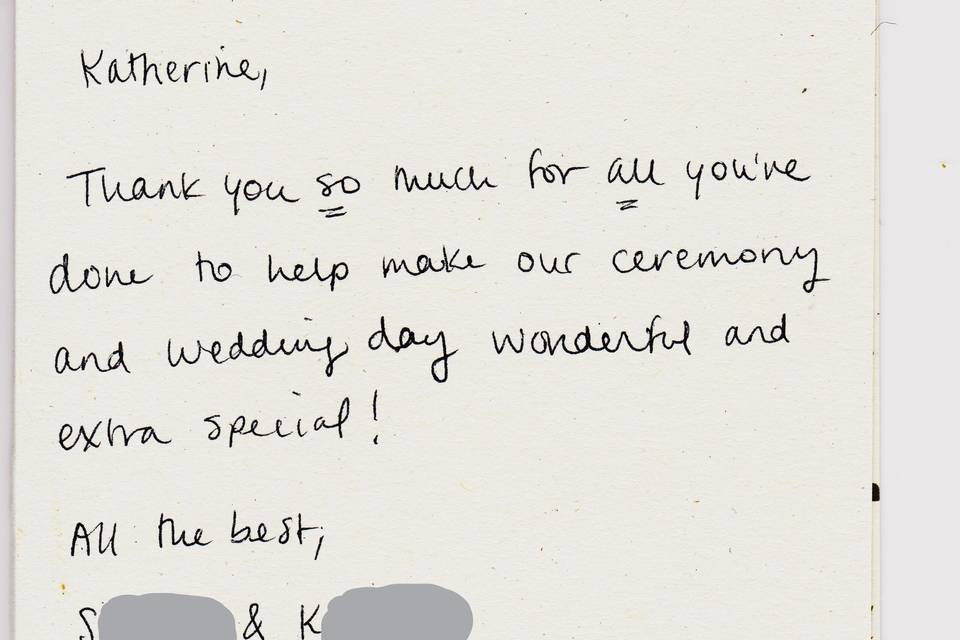 Katherine,
Thank you so much for all you've
done to help make our ceremony
and wedding day wonderful and
extra special!
All the best,
S & K